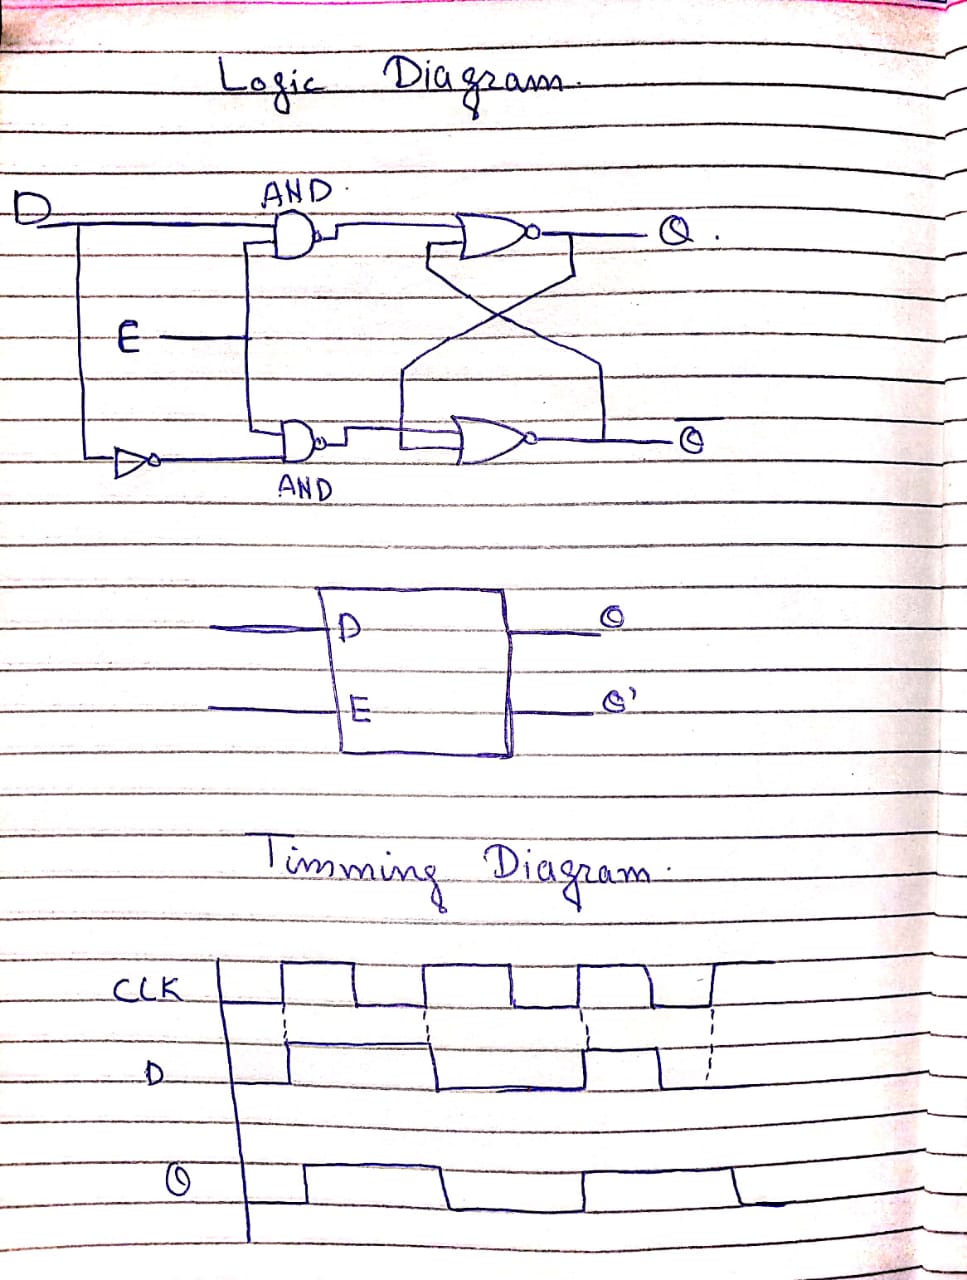 Logic Diagram.
AND
D
Q.
E
Q
AND
D
Q
E
Q'
Timming Diagram.
CLK
D
Q